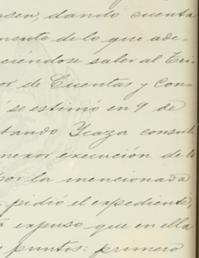 asen, dando cuenta
mente de lo que ade-
ciéndose saber al Tri-
or de Cuentas y Con-
se estimó en 9 de
tando Ycaza consul
nexor execución de lo
por la mencionada
pidió el expediente,
expuso que en ella
puntos: primero